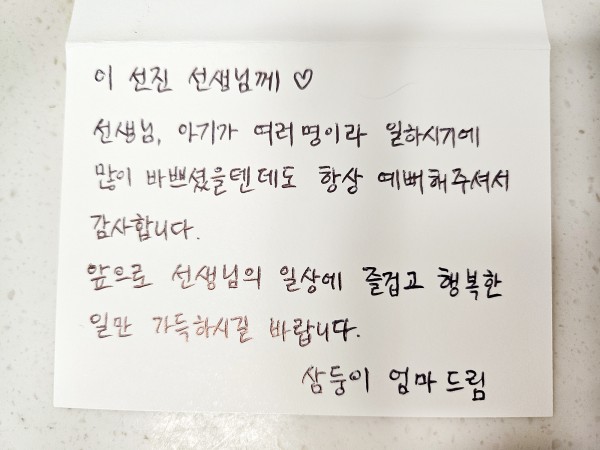 이 선진 선생님께 ♡
선생님, 아기가 여러명이라 일하시기에
많이 바쁘셨을텐데도 항상 예뻐해주셔서
감사합니다.
앞으로 선생님의 일상에 즐겁고 행복한
일만 가득하시길 바랍니다.
삼둥이 엄마 드림